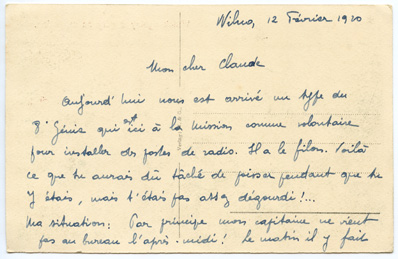 Wilno, 12 Février 1920
Mon cher Claude
Aujourd'hui nous est arrivé un type du
8e Génie qui est ici à la mission comme volontaire
pour installer des postes de radio. Il a le filon. Voilà
ce que tu aurais dû tâché de pisser pendant que tu
y étais, mais t'étais pas assez dégourdi!...
Ma situation: Par principe mon capitaine ne vient
pas au bureau l'après-midi! Le matin il y fait